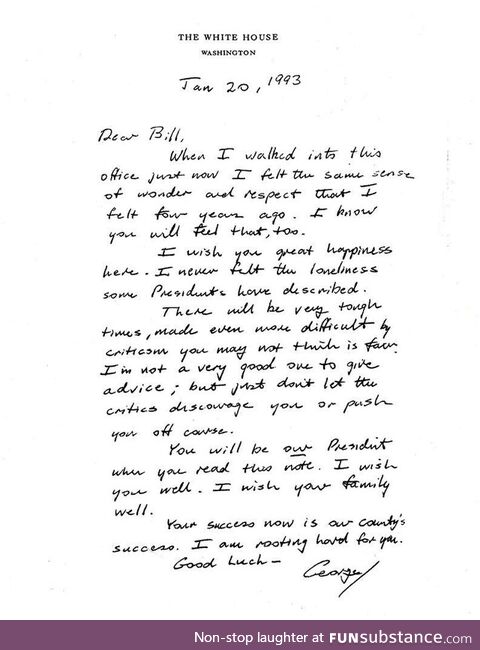 THE WHITE HOUSE
WASHINGTON
Jan 20, 1993
Dear Bill,
When I walked into this
office just now I felt the same sense
of wonder and respect that I
felt four years ago. I know
you will feel that, too.
I wish you great happiness
here. I never felt the loneliness
some Presidents have described.
There will be very tough
times, made even more difficult by
criticism you may not think is fair.
I'm not a very good one to give
advice; but just don't let the
critics discourage you or push
you off course.
You will be our President
when you read this note. I wish
you well. I wish your family
well.
Your success now is our county's
success. I am rooting hard for you.
Good Luck—
George
Non-stop laughter at FUNsubstance.com